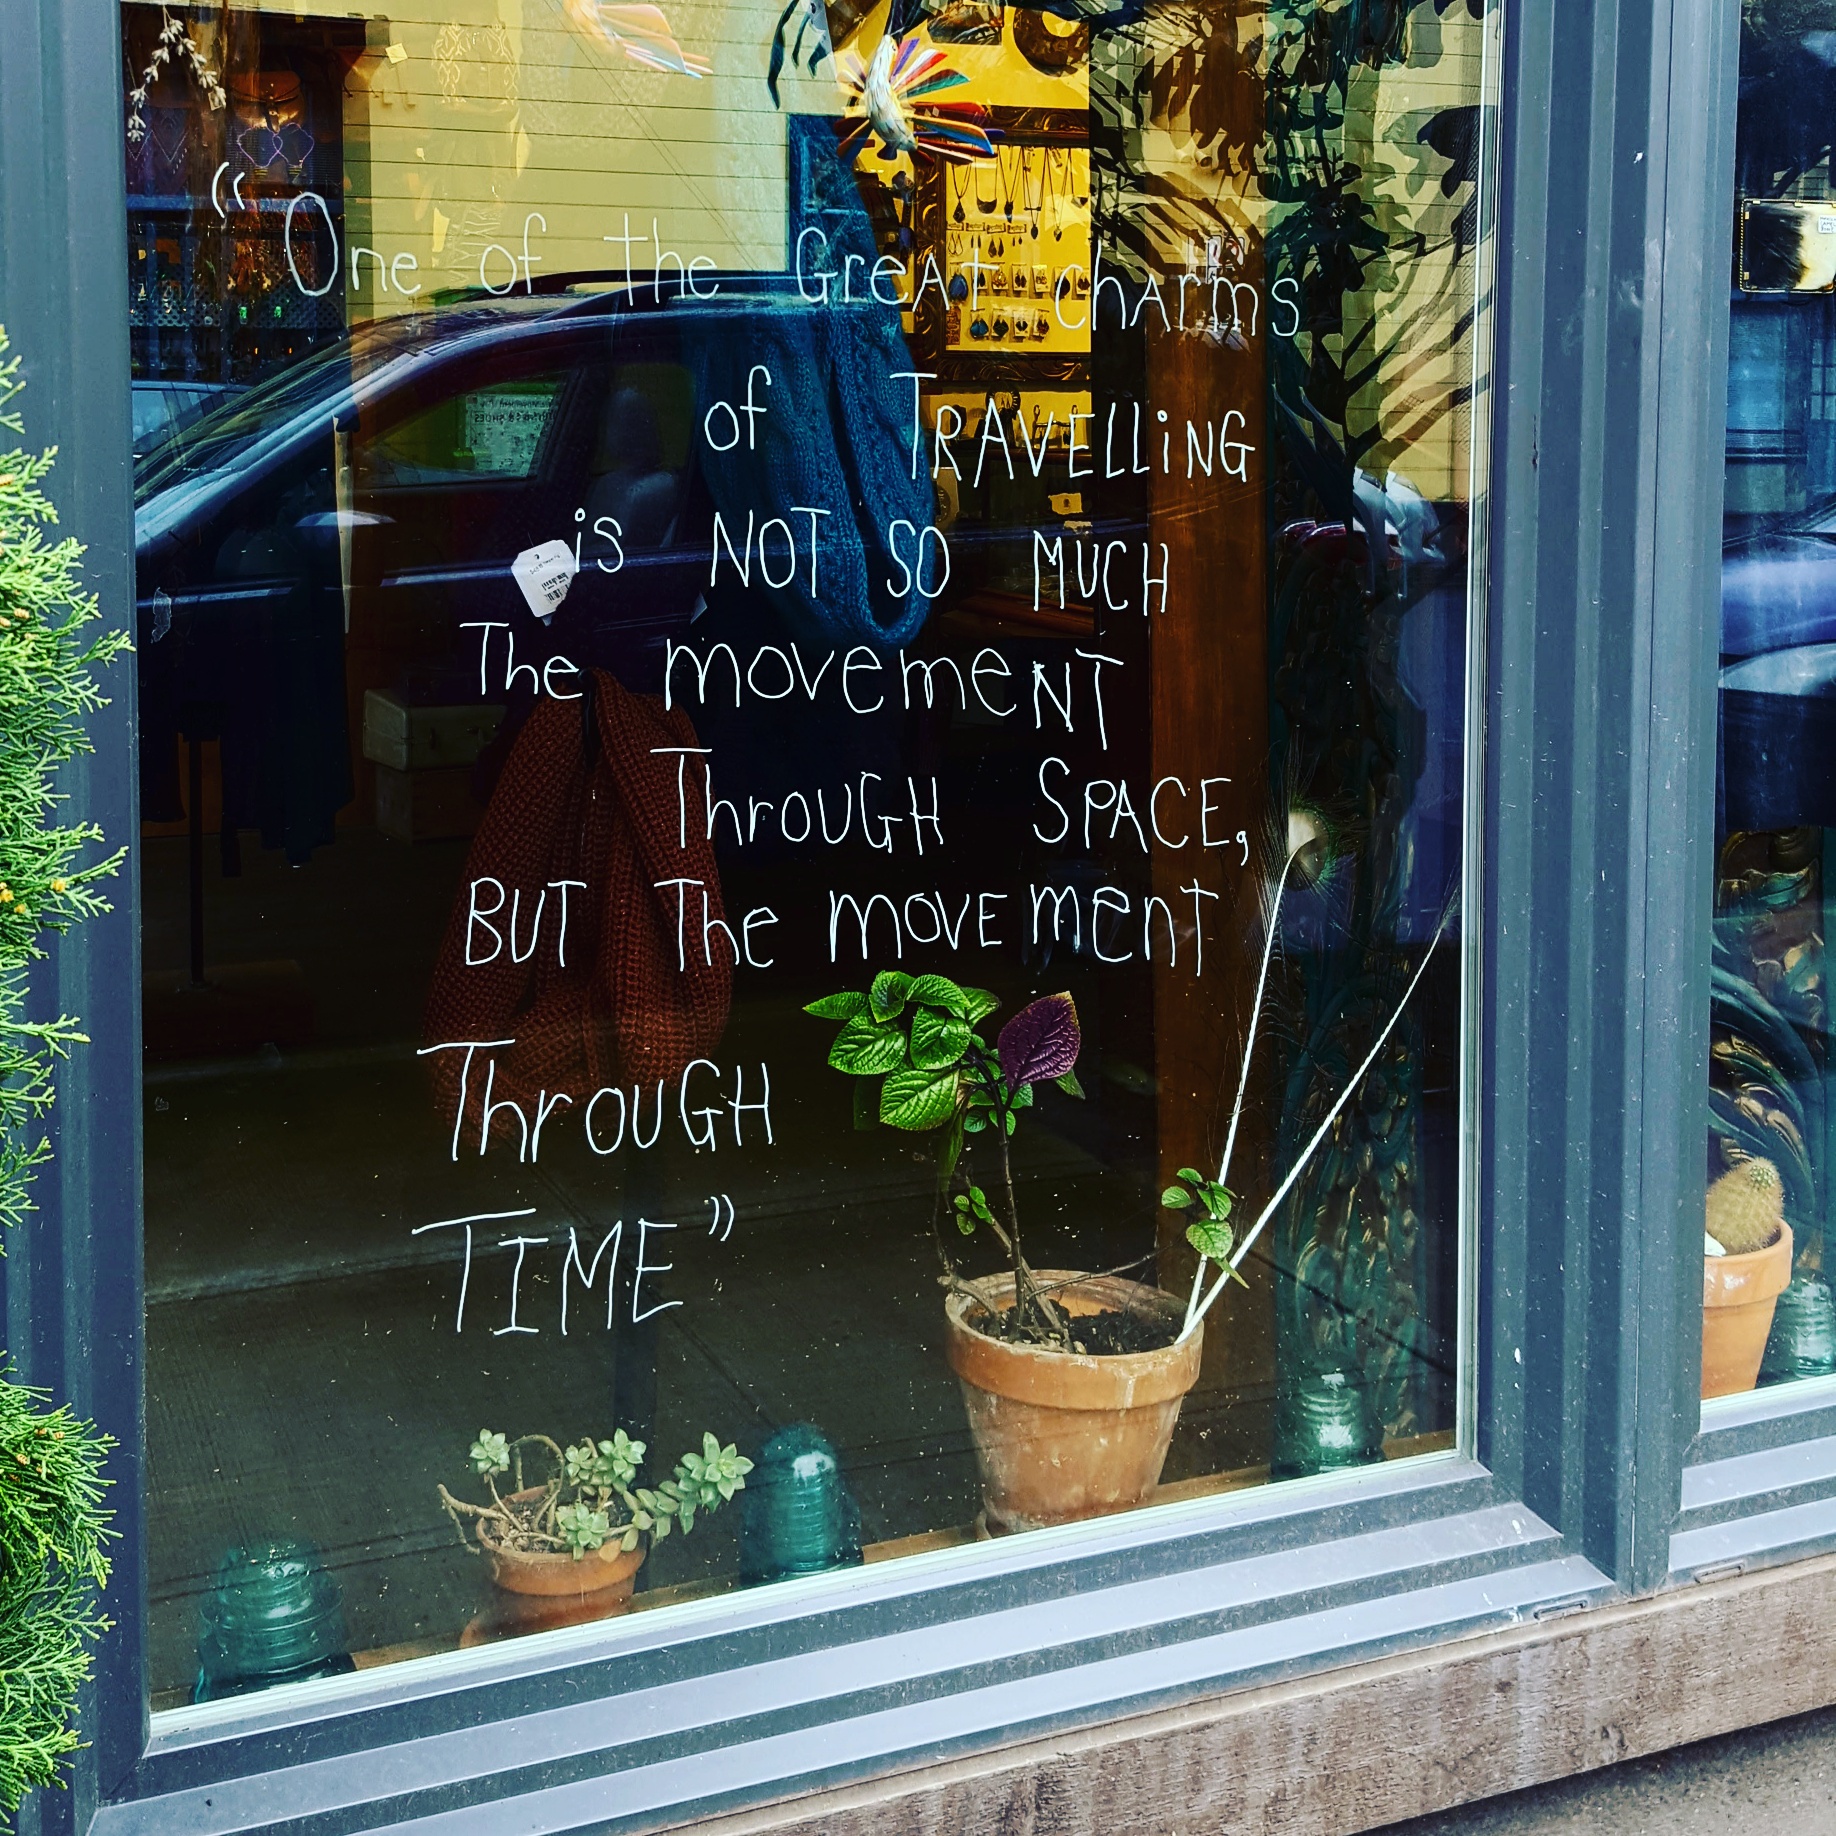 “One of the GreAT chArms
of TRAVELLiNG
is NOT SO MUCH
The movemeNT
ThroUGH SPACE,
BUT The movEmenT
ThroUGH
TIME”